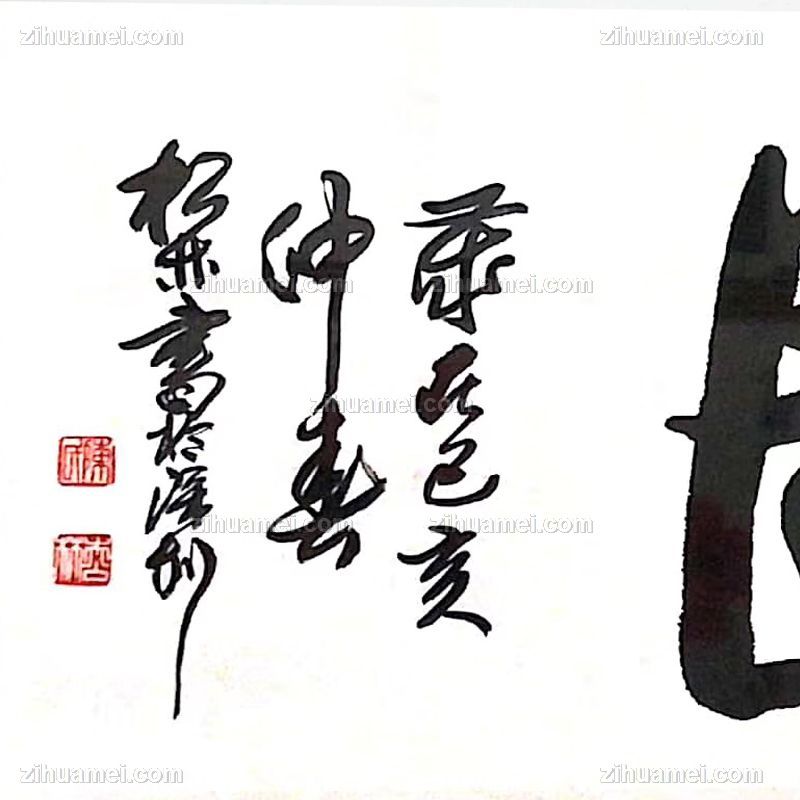 歲在己亥
仲春
松林書於深圳
zihuamei.com
zihuamei.com
zihuamei.com
zihuamei.com
zihuamei.com
zihuamei.com
zihuamei.com
zihuamei.com
zihuamei.com
zihuamei.com